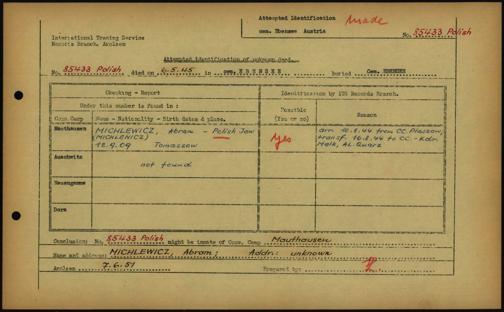 Attempted Identification made
International Tracing Service
Records Branch, Arolsen
cem. Ebensee Austria
No. 85433 Polish
Attempted identification of unknown dead.
No. 85433 Polish died on 6.5.45 in EBENSEE Buried Cem. EBENSEE
Checking - Report
Identification by ITS Records Branch.
Under this number is found in :
Possible
(You or no)
Reason
Conc Camp
Name - Nationality - Birth dates & place.
Mauthausen
MICHLEWICZ, Abram - Polish Jew
(MICHLENICZ)
12.9.09 Tomaszow
Yes
arr. 10.8.44 from CC. Plaszow,
transf. 16.8.44 to CC.-Kdo.
Melk, AL. Quarz
Auschwitz
not found
Neuengamme
Dora
Conclusion: No. 85433 Polish might be inmate of Conc. Camp Mauthausen
Name and address: MICHLEWICZ, Abram; Addr: unknown
Arolsen 7.6.51 Prepared by: